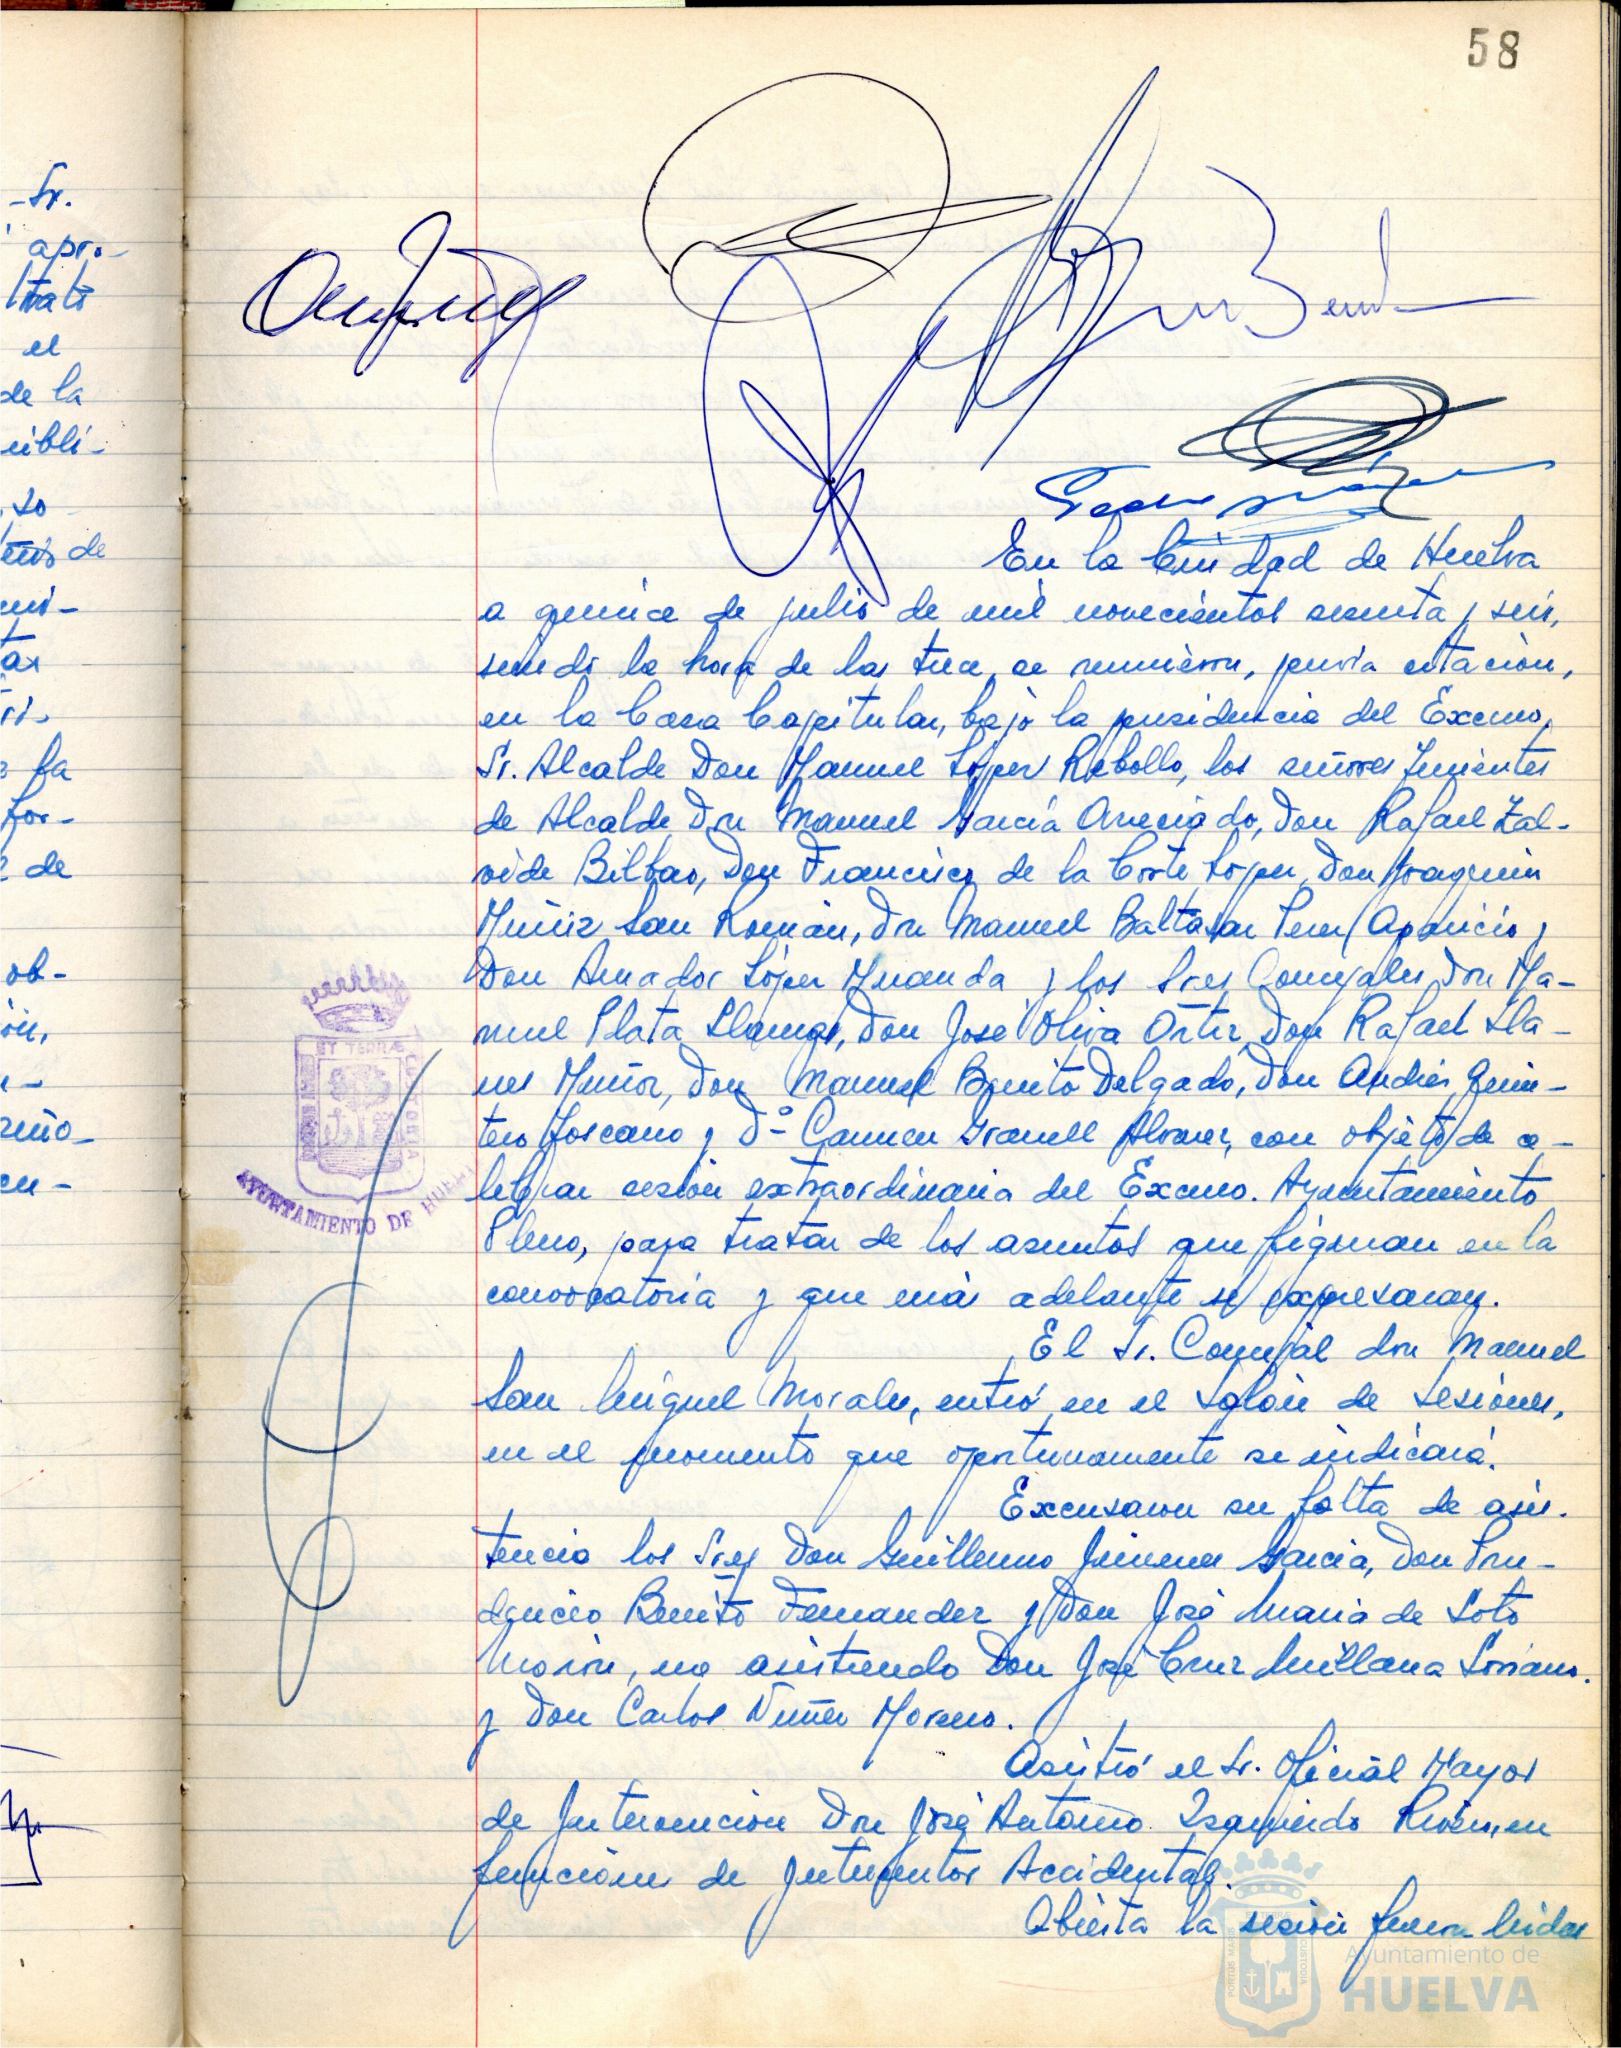 58
-Sr.
apro-
el
de la
úbli-
de
la
for-
de
ob-
ón,
En la Ciudad de Huelva
a quince de julio de mil novecientos sesenta y seis,
siendo la hora de las trece, se reunieron, previa citación,
en la Casa Capitular, bajo la presidencia del Excmo.
Sr. Alcalde Don Manuel López Rebollo, los señores Tenientes
de Alcalde Don Manuel García Arreciado, Don Rafael Zal-
vide Bilbao, Don Francisco de la Corte López, Don Joaquín
Muñiz San Román, Don Manuel Baltasar Pérez Aparicio y
Don Amador López Miranda y los Sres Concejales Don Ma-
nuel Plata Llamga, Don José Oliva Ortiz, Don Rafael Lla-
nes Muñoz, Don Manuel Benito Delgado, Don Andrés Quin-
tero Toscano y Dª Carmen Granell Alvarez, con objeto de ce-
lebrar sesión extraordinaria del Excmo. Ayuntamiento
Pleno, para tratar de los asuntos que figuran en la
convocatoria y que más adelante se expresaran.
El Sr. Concejal don Manuel
San Miguel Morales, entró en el Salón de Sesiones,
en el momento que oportunamente se indicará.
Excusaron su falta de asis-
tencia los Sres Don Guillermo Jimenez García, Don Pru-
dencio Benito Fernandez y Don José María de Soto
Morón, no asistiendo Don José Cruz Millana Soriano
y Don Carlos Núñez Moreno.
Asistió el Sr. Oficial Mayor
de Intervención Don José Antonio Izquierdo en
funciones de Interventor Accidental.
Abierta la sesión fueron leidas
AYUNTAMIENTO DE HUELVA
Ayuntamiento de
HUELVA